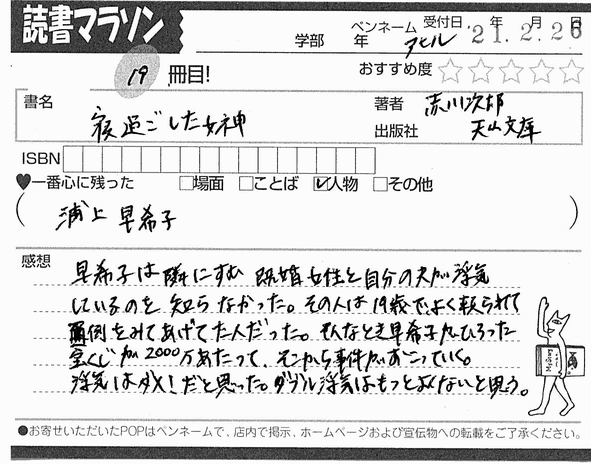 読書マラソン
学部 年 ペンネーム アヒル 受付日 '21.年2.月26日
19 冊目! おすすめ度 ☆☆☆☆☆
書名 寝過ごした女神
著者 赤川次郎
出版社 天山文庫
ISBN
♥一番心に残った □場面 □ことば ☑人物 □その他
( 浦上早希子 )
感想
早希子は隣にすむ既婚女性と自分の夫が浮気
しているのを知らなかった。その人は19歳でよく頼られて
面倒をみてあげてた人だった。そんなとき早希子がひろった
宝くじが2000万あたって、そこから事件がおこっていく。
浮気はダメ!だと思った。ダブル浮気はもっとよくないと思う。
●お寄せいただいたPOPはペンネームで、店内で掲示、ホームページおよび宣伝物への転載をご了承ください。